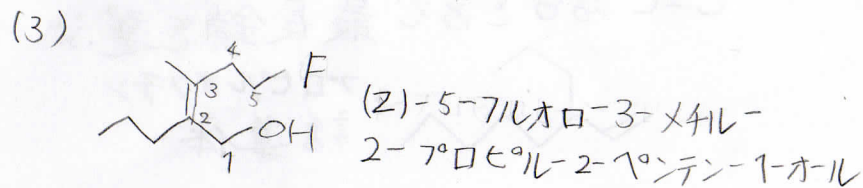 (3)
4
F
3
5
2
OH
1
(Z)-5-フルオロ-3-メチル-
2-プロピル-2-ペンテン-1-オール